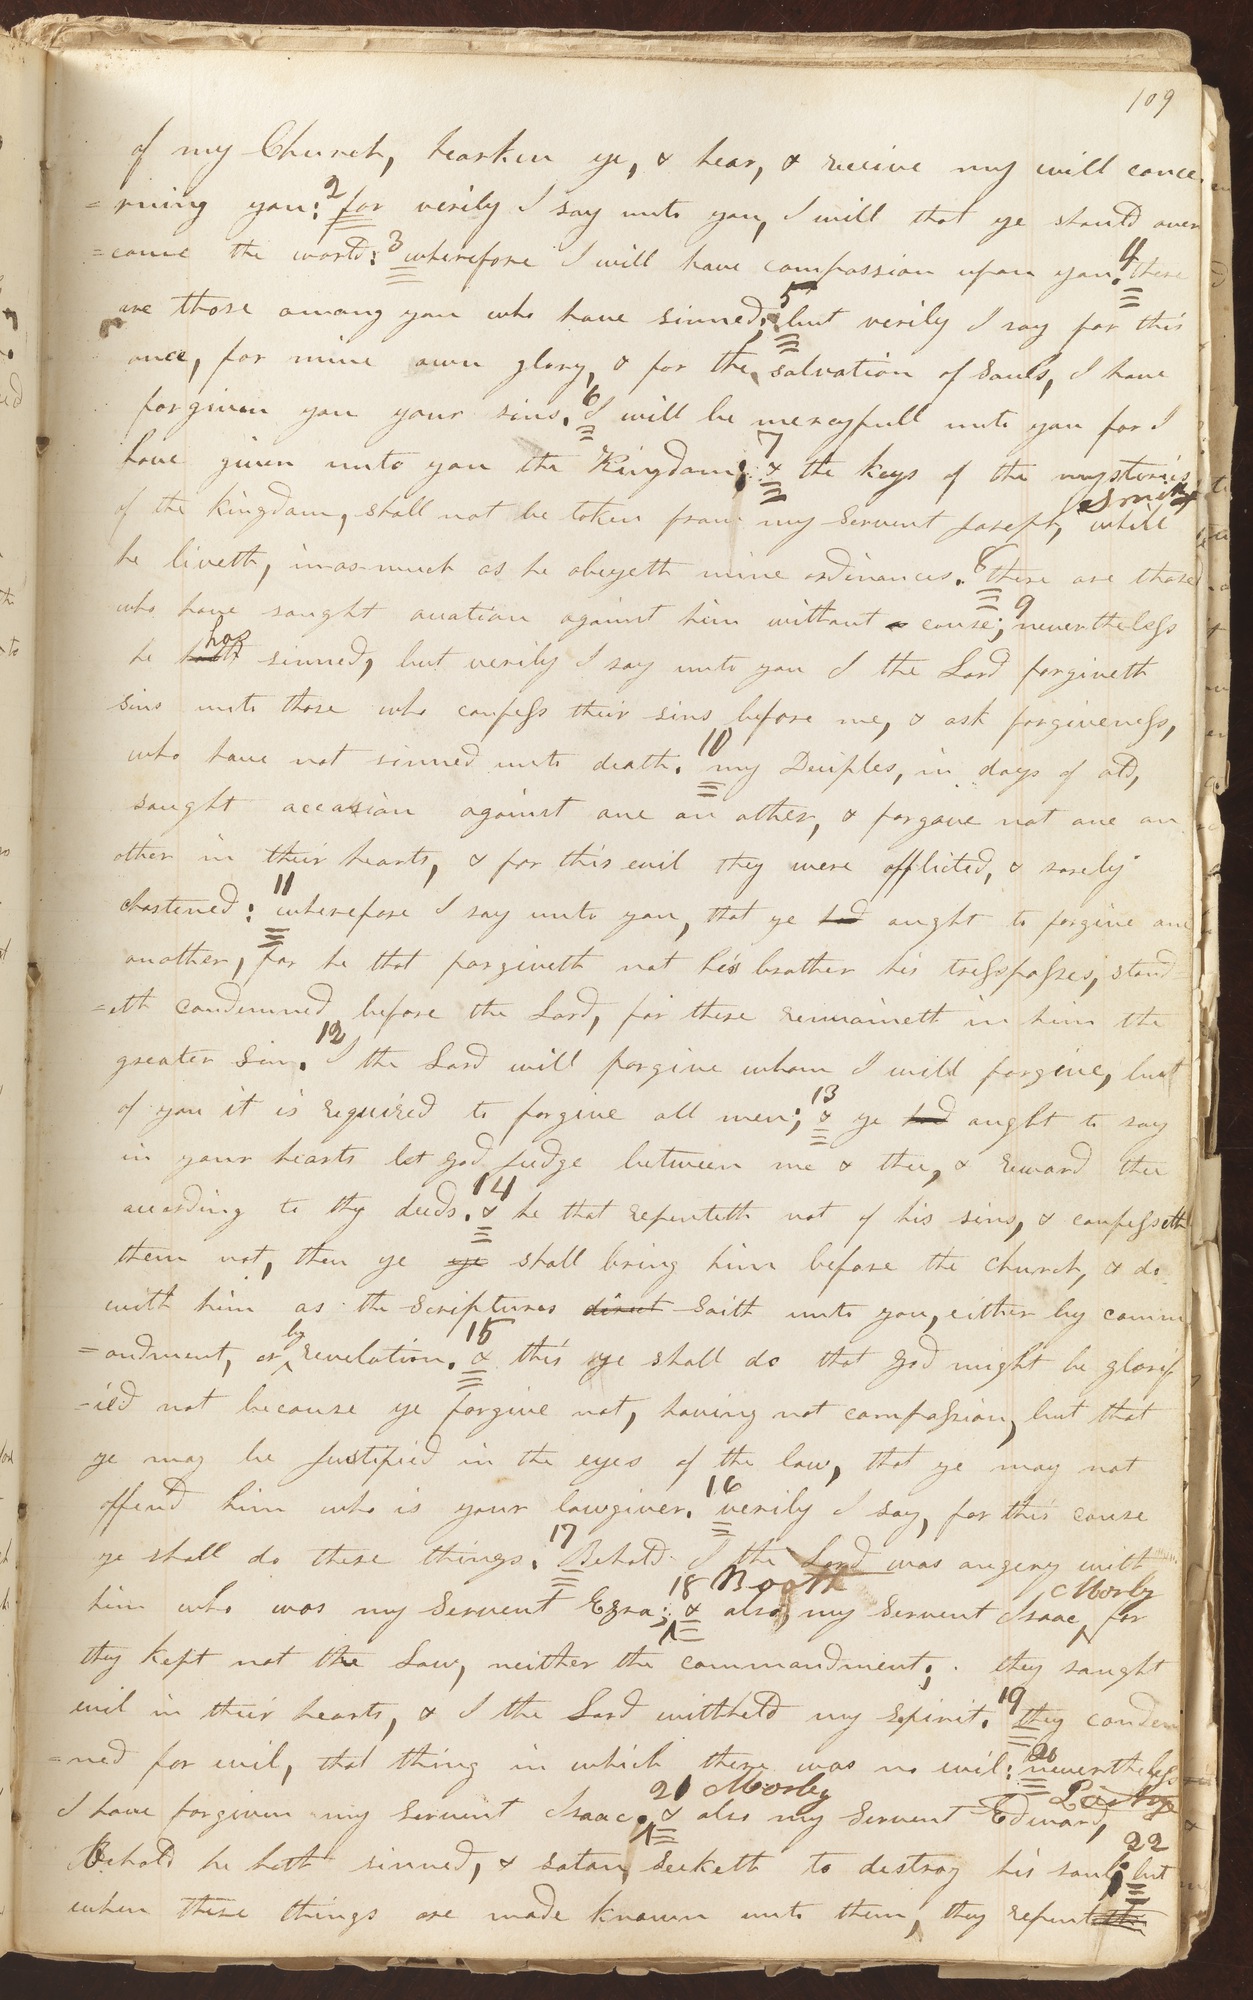 109
of my Church, hearken ye, & hear, & receive my will conce
=rning you: 2 for verily I say unto you, I will that ye should over
=come the world: 3 wherefore I will have compassion upon you. 4 there
are those among you who have sinned; 5 but verily I say for this
once, for mine own glory, & for the salvation of Souls, I have
forgiven you your sins. 6 I will be mercyfull unto you for I
have given unto you the Kingdom: 7 & the keys of the mysteries
of the kingdom, shall not be taken from my Servent Joseph, Smith while
he liveth, inas-much as he obeyeth mine ordinances. 8 there are those
who have saught ocation against him without a cause; 9 nevertheless
he hath has sinned, but verily I say unto you I the Lord forgiveth
sins unto those who confess their sins before me, & ask forgiveness,
who have not sinned unto death. 10 my Deciples, in days of old,
saught occasion against one an other, & forgave not one an
other in their hearts, & for this evil they were afflicted, & sorely
chastened: 11 wherefore I say unto you, that ye had aught to forgive one
another, for he that forgiveth not his brother his tresspasses, stand
=eth condemned before the Lord, for there remaineth in him the
greater Sin. 12 I the Lord will forgive whom I will forgive, but
of you it is required to forgive all men; 13 & ye had aught to say
in your hearts let god Judge between me & thee, & reward thee
according to thy deeds. 14 & he that repenteth not of his sins, & confesseth
them not, then ye ye shall bring him before the Church, & do
with him as the Scriptures direct Saith unto you, either by comm
=andment, or by revelation. 15 & this ye shall do that God might be glorif
-ied not because ye forgive not, having not compassion, but that
ye may be Justified in the eyes of the law, that ye may not
offend him who is your lawgiver. 16 verily I say, for this cause
ye shall do these things. 17 Behold I the Lord was angery with
him who was my Servent Ezra; Booth 18 & also, my Servent Isaac, Morley for
they kept not the Law, neither the commandment; they saught
evil in their hearts, & I the Lord withheld my Spirit. 19 they condem
=ned for evil, that thing in which there was no evil: 20 nevertheless
I have forgiven my Servent Isaac. Morley 21 & also my Servent Edward, Partridge
Behold he hath sinned, & satan seeketh to destroy his soul; 22 but
when these things are made known unto them, they repenteth